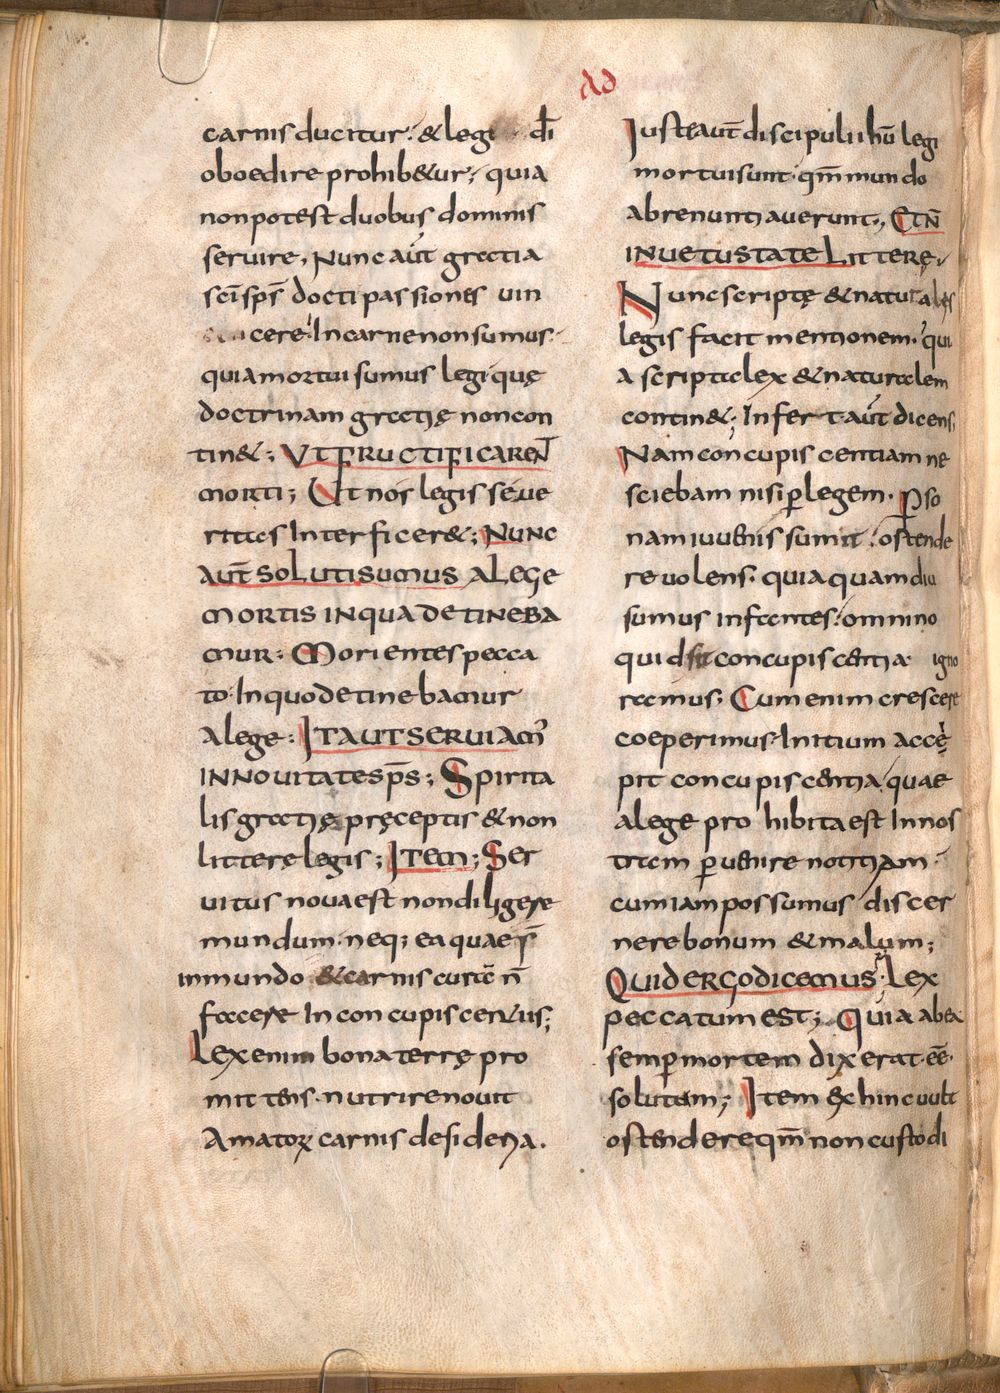 ad
carnis ducitur; & legi d̄i
oboedire prohib&ur; quia
non potest duobus dominis
seruire, Nunc aūt gratia
sc̄i sp̄s docti passiones uin
cere. In carne non sumus.
quia mortui sumus legi quę
doctrinam gratię non con
tin&; UT FRUCTIFICARENT
MORTI; Ut nos legis seue
ritas interficer&; NUNC
AUT̄ SOLUTI SUMUS A LEGE
MORTIS IN QUA DETINEBA
MUR: Morientes pecca
to. In quo detinebamur
a lege: ITA UT SERUIAM'
IN NOUITATE SP̄S; Spirita
lis gratię pręceptis & non
litterę legis; ITEM; Ser
uitus noua est non diligere
mundum. neq; ea quae s̄
in mundo & carnis curā n̄
facere In concupiscentiis;
Lex enim bona terrę pro
mittens. nutrire nouit
Amatorꝝ carnis desideria.
Iuste aūt discipuli ih̄u legi
mortui sunt. qm̄ mundo
abrenuntiauerunt., ET N̄
IN UETUSTATE LITTERĘ.
Nunc scriptę & naturalęs
legis facit mentionem. qui
a scripta lex & naturalem
contin&; Infert aūt dicens,
Nam concupiscentiam ne
sciebam nisi ꝑ legem. Pso
nam iuuenis sumit. ostende
re uolens. quia quamdiu
sumus infantes. omnino
quid sit concupiscentia igno
ramus. Cum enim crescere
coeperimus. Initium accę
pit concupiscentia. quae
a lege prohibita est In nos
tram ꝑuenire notitiam.
cum iam possumus discer
nere bonum & malum;
QUID ERGO DICEMUS. LEX
PECCATUM EST; Quia ab ea
semꝑ mortem dixerat. ēē.
solutam; Item ęx hinc uult
ostendere qm̄ non custodi